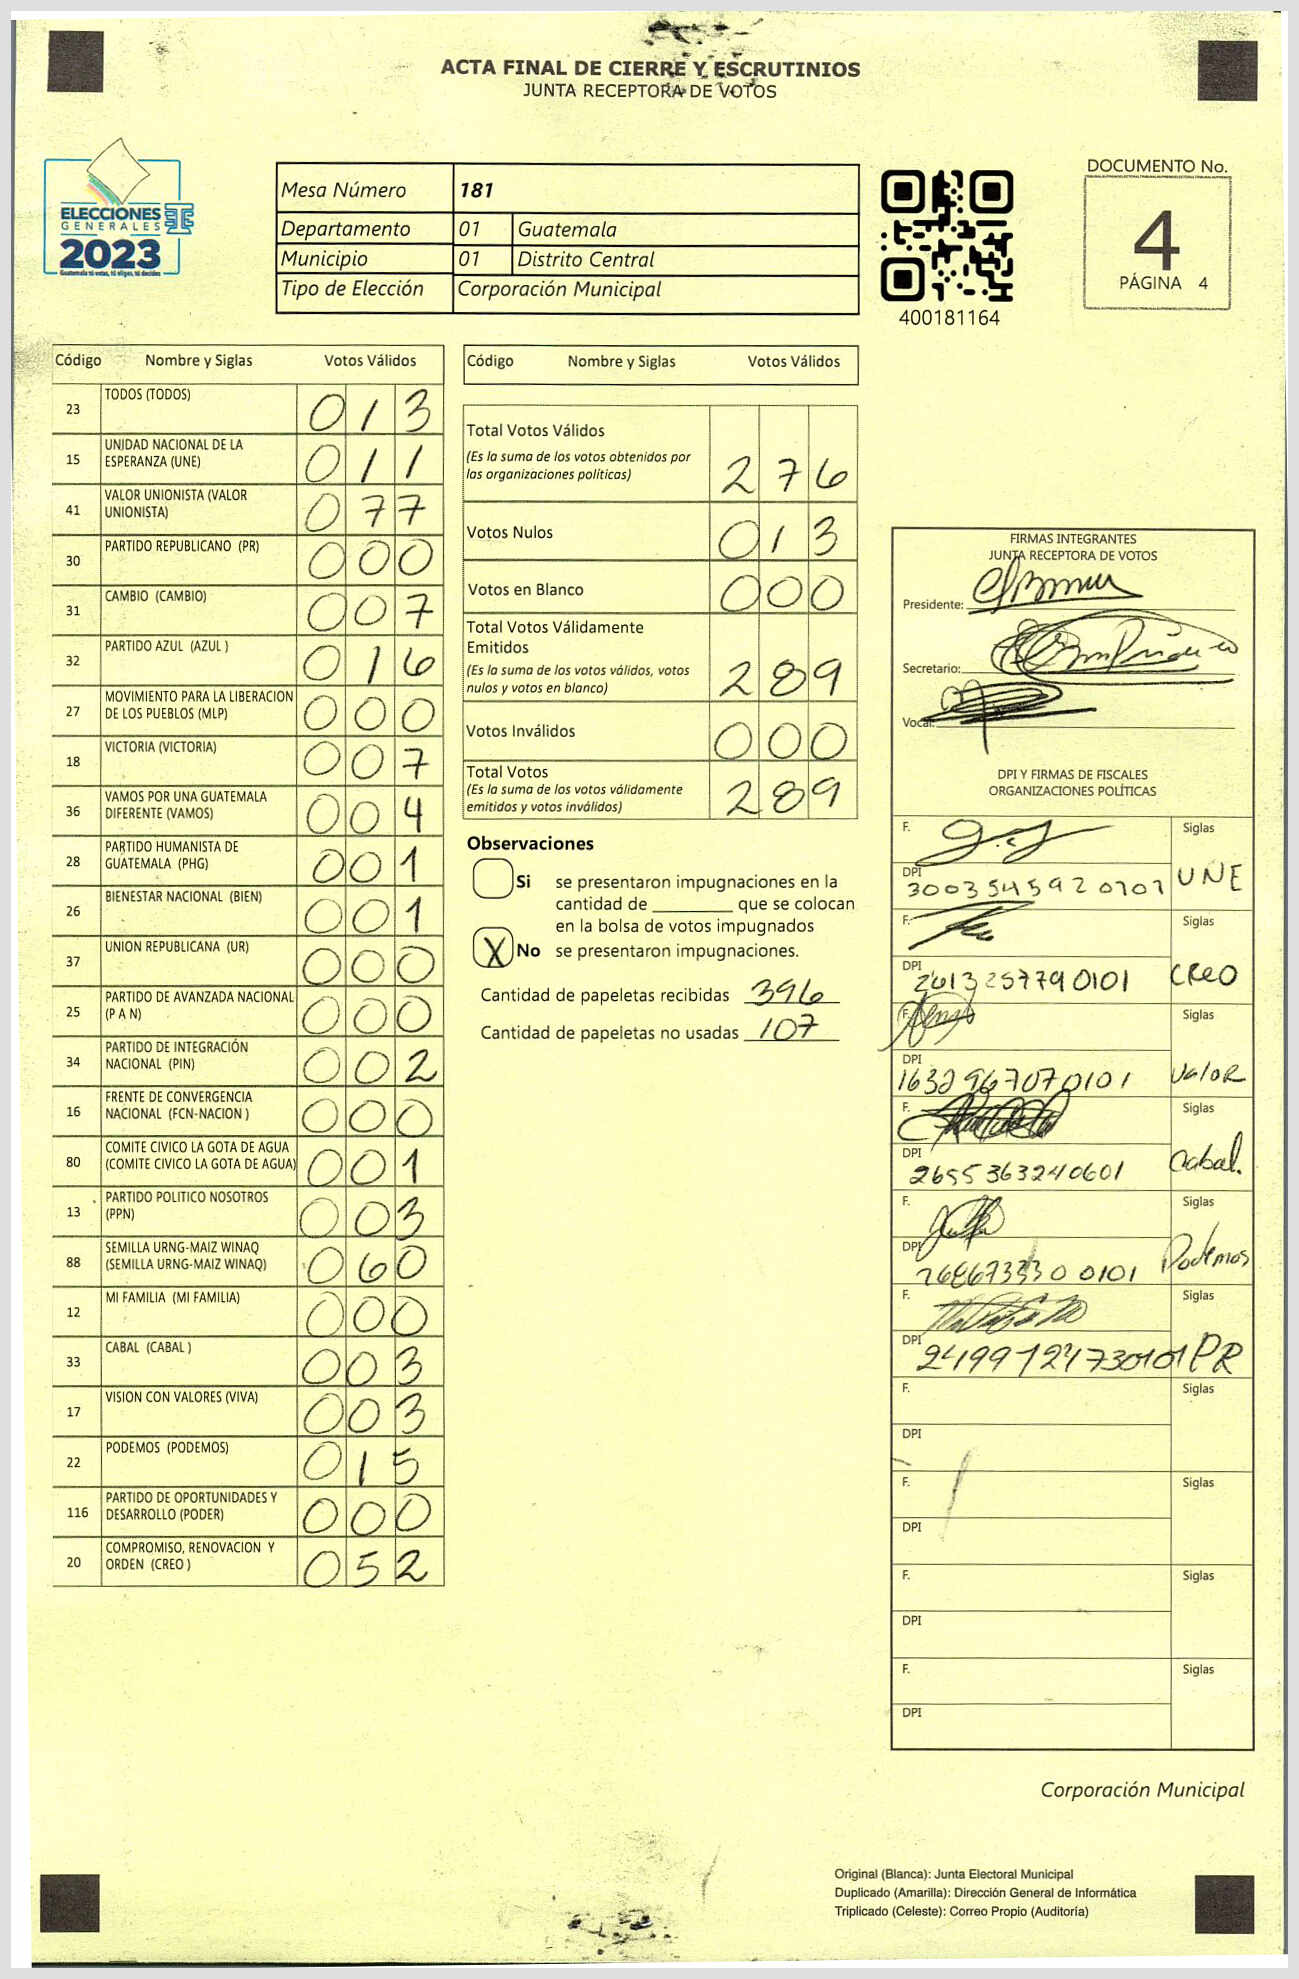 ACTA FINAL DE CIERRE Y ESCRUTINIOS
JUNTA RECEPTORA DE VOTOS
ELECCIONES
GENERALES
2023
Guatemala tú votas, tú eliges, tú decides
Mesa Número 181
Departamento 01 Guatemala
Municipio 01 Distrito Central
Tipo de Elección Corporación Municipal
400181164
DOCUMENTO No.
4
PÁGINA 4
Código Nombre y Siglas Votos Válidos
23 TODOS (TODOS) 013
15 UNIDAD NACIONAL DE LA
ESPERANZA (UNE) 011
41 VALOR UNIONISTA (VALOR
UNIONISTA) 077
30 PARTIDO REPUBLICANO (PR) 000
31 CAMBIO (CAMBIO) 007
32 PARTIDO AZUL (AZUL ) 016
27 MOVIMIENTO PARA LA LIBERACION
DE LOS PUEBLOS (MLP) 000
18 VICTORIA (VICTORIA) 007
36 VAMOS POR UNA GUATEMALA
DIFERENTE (VAMOS) 004
28 PARTIDO HUMANISTA DE
GUATEMALA (PHG) 001
26 BIENESTAR NACIONAL (BIEN) 001
37 UNION REPUBLICANA (UR) 000
25 PARTIDO DE AVANZADA NACIONAL
(P A N) 000
34 PARTIDO DE INTEGRACIÓN
NACIONAL (PIN) 002
16 FRENTE DE CONVERGENCIA
NACIONAL (FCN-NACION ) 000
80 COMITE CIVICO LA GOTA DE AGUA
(COMITE CIVICO LA GOTA DE AGUA) 001
13 PARTIDO POLITICO NOSOTROS
(PPN) 003
88 SEMILLA URNG-MAIZ WINAQ
(SEMILLA URNG-MAIZ WINAQ) 060
12 MI FAMILIA (MI FAMILIA) 000
33 CABAL (CABAL ) 003
17 VISION CON VALORES (VIVA) 003
22 PODEMOS (PODEMOS) 015
116 PARTIDO DE OPORTUNIDADES Y
DESARROLLO (PODER) 000
20 COMPROMISO, RENOVACION Y
ORDEN (CREO ) 052
Código Nombre y Siglas Votos Válidos
Total Votos Válidos
(Es la suma de los votos obtenidos por
las organizaciones políticas) 276
Votos Nulos 013
Votos en Blanco 000
Total Votos Válidamente
Emitidos
(Es la suma de los votos válidos, votos
nulos y votos en blanco) 289
Votos Inválidos 000
Total Votos
(Es la suma de los votos válidamente
emitidos y votos inválidos) 289
Observaciones
Si se presentaron impugnaciones en la
cantidad de ________ que se colocan
en la bolsa de votos impugnados
X No se presentaron impugnaciones.
Cantidad de papeletas recibidas 396
Cantidad de papeletas no usadas 107
FIRMAS INTEGRANTES
JUNTA RECEPTORA DE VOTOS
Presidente:
Secretario:
Vocal:
DPI Y FIRMAS DE FISCALES
ORGANIZACIONES POLÍTICAS
F. Siglas
DPI 3003545920707 UNE
F. Siglas
DPI 2613257790101 CREO
F. Siglas
DPI 1632967070101 Valor
F. Siglas
DPI 2655363240601 Cabal.
F. Siglas
DPI Podemos
F. Siglas
DPI 2499124730101 PR
F. Siglas
DPI
F. Siglas
DPI
F. Siglas
DPI
F. Siglas
DPI
Corporación Municipal
Original (Blanca): Junta Electoral Municipal
Duplicado (Amarilla): Dirección General de Informática
Triplicado (Celeste): Correo Propio (Auditoría)